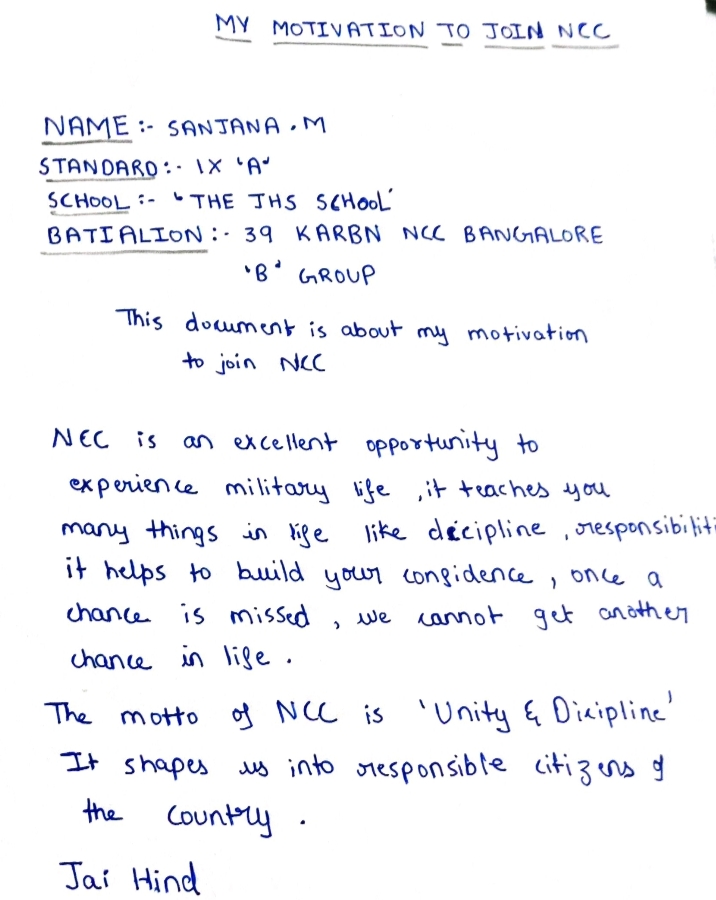 MY MOTIVATION TO JOIN NCC
NAME :- SANJANA . M
STANDARD :- IX 'A'
SCHOOL :- 'THE JHS SCHOOL'
BATIALION :- 39 KARBN NCC BANGALORE
'B' GROUP
This document is about my motivation
to join NCC
NCC is an excellent opportunity to
experience military life , it teaches you
many things in life like decipline , responsibiliti
it helps to build your confidence , once a
chance is missed , we cannot get another
chance in life .
The motto of NCC is 'Unity & Dicipline'
It shapes us into responsible citizens of
the country .
Jai Hind